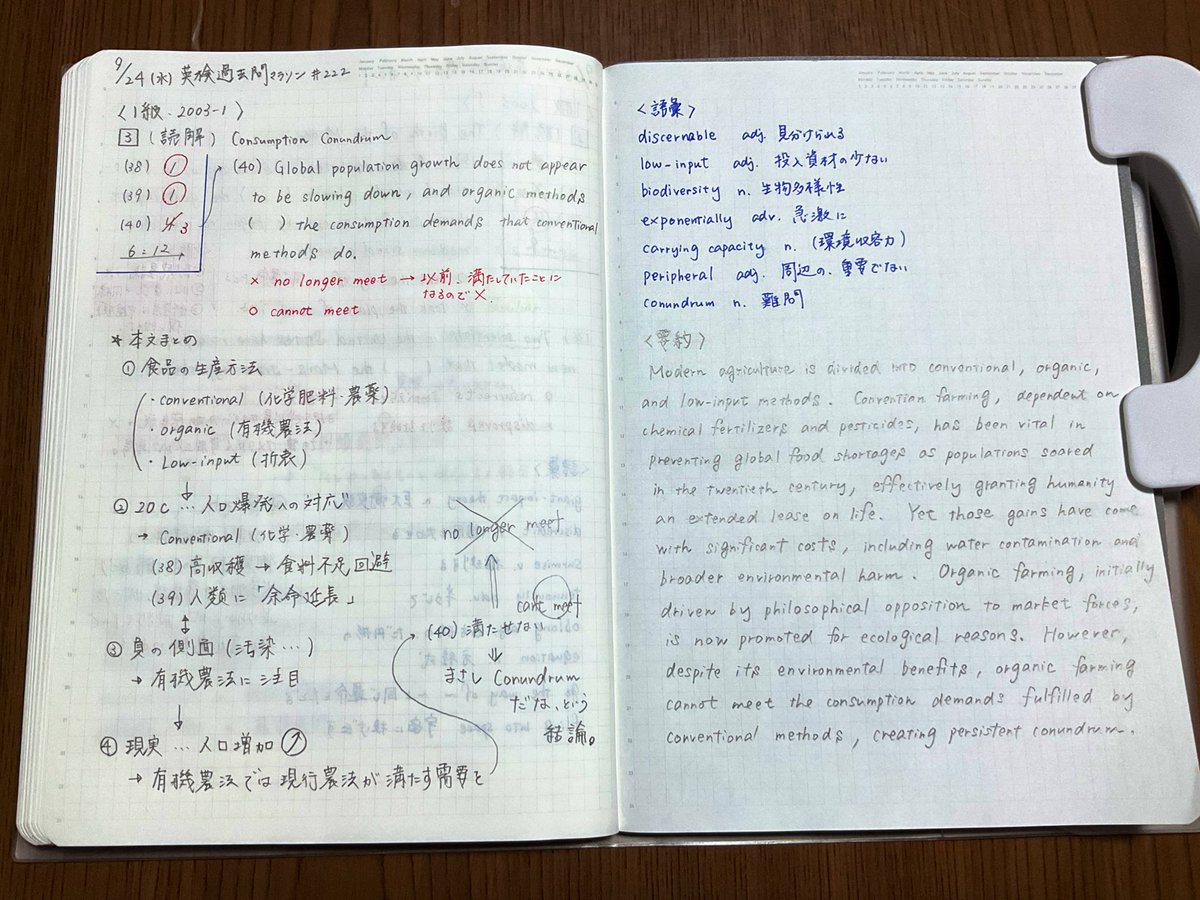 9/24(水) 英検過去問マラソン #222
〈1級・2003-1〉
3 (読解) Consumption Conundrum
(38) 1
(39) 1
(40) 4 3
6:12
(40) Global population growth does not appear
to be slowing down, and organic methods
( ) the consumption demands that conventional
methods do.
× no longer meet → 以前、満たしていたことに
なるので×.
○ cannot meet
* 本文まとめ
① 食品の生産方法
・conventional (化学肥料・農薬)
・organic (有機農法)
・Low-input (折衷)
↓
② 20C … 人口爆発への対応
→ Conventional (化学・農薬)
(38) 高収穫 → 食料不足回避
(39) 人類に「余命延長」
↕
③ 負の側面 (汚染…)
→ 有機農法に注目
↓
④ 現実 … 人口増加 ↗
→ 有機農法では現行農法が満たす需要を
(40) 満たせない
no longer meet
can't meet
⇓
まさしく Conundrum
だな、という
結論。
〈語彙〉
discernable adj. 見分けられる
low-input adj. 投入資材の少ない
biodiversity n. 生物多様性
exponentially adv. 急激に
carrying capacity n. (環境収容力)
peripheral adj. 周辺の、重要でない
conundrum n. 難問
〈要約〉
Modern agriculture is divided into conventional, organic,
and low-input methods. Convention farming, dependent on
chemical fertilizers and pesticides, has been vital in
preventing global food shortages as populations soared
in the twentieth century, effectively granting humanity
an extended lease on life. Yet those gains have come
with significant costs, including water contamination and
broader environmental harm. Organic farming, initially
driven by philosophical opposition to market forces,
is now promoted for ecological reasons. However,
despite its environmental benefits, organic farming
cannot meet the consumption demands fulfilled by
conventional methods, creating persistent conundrum.